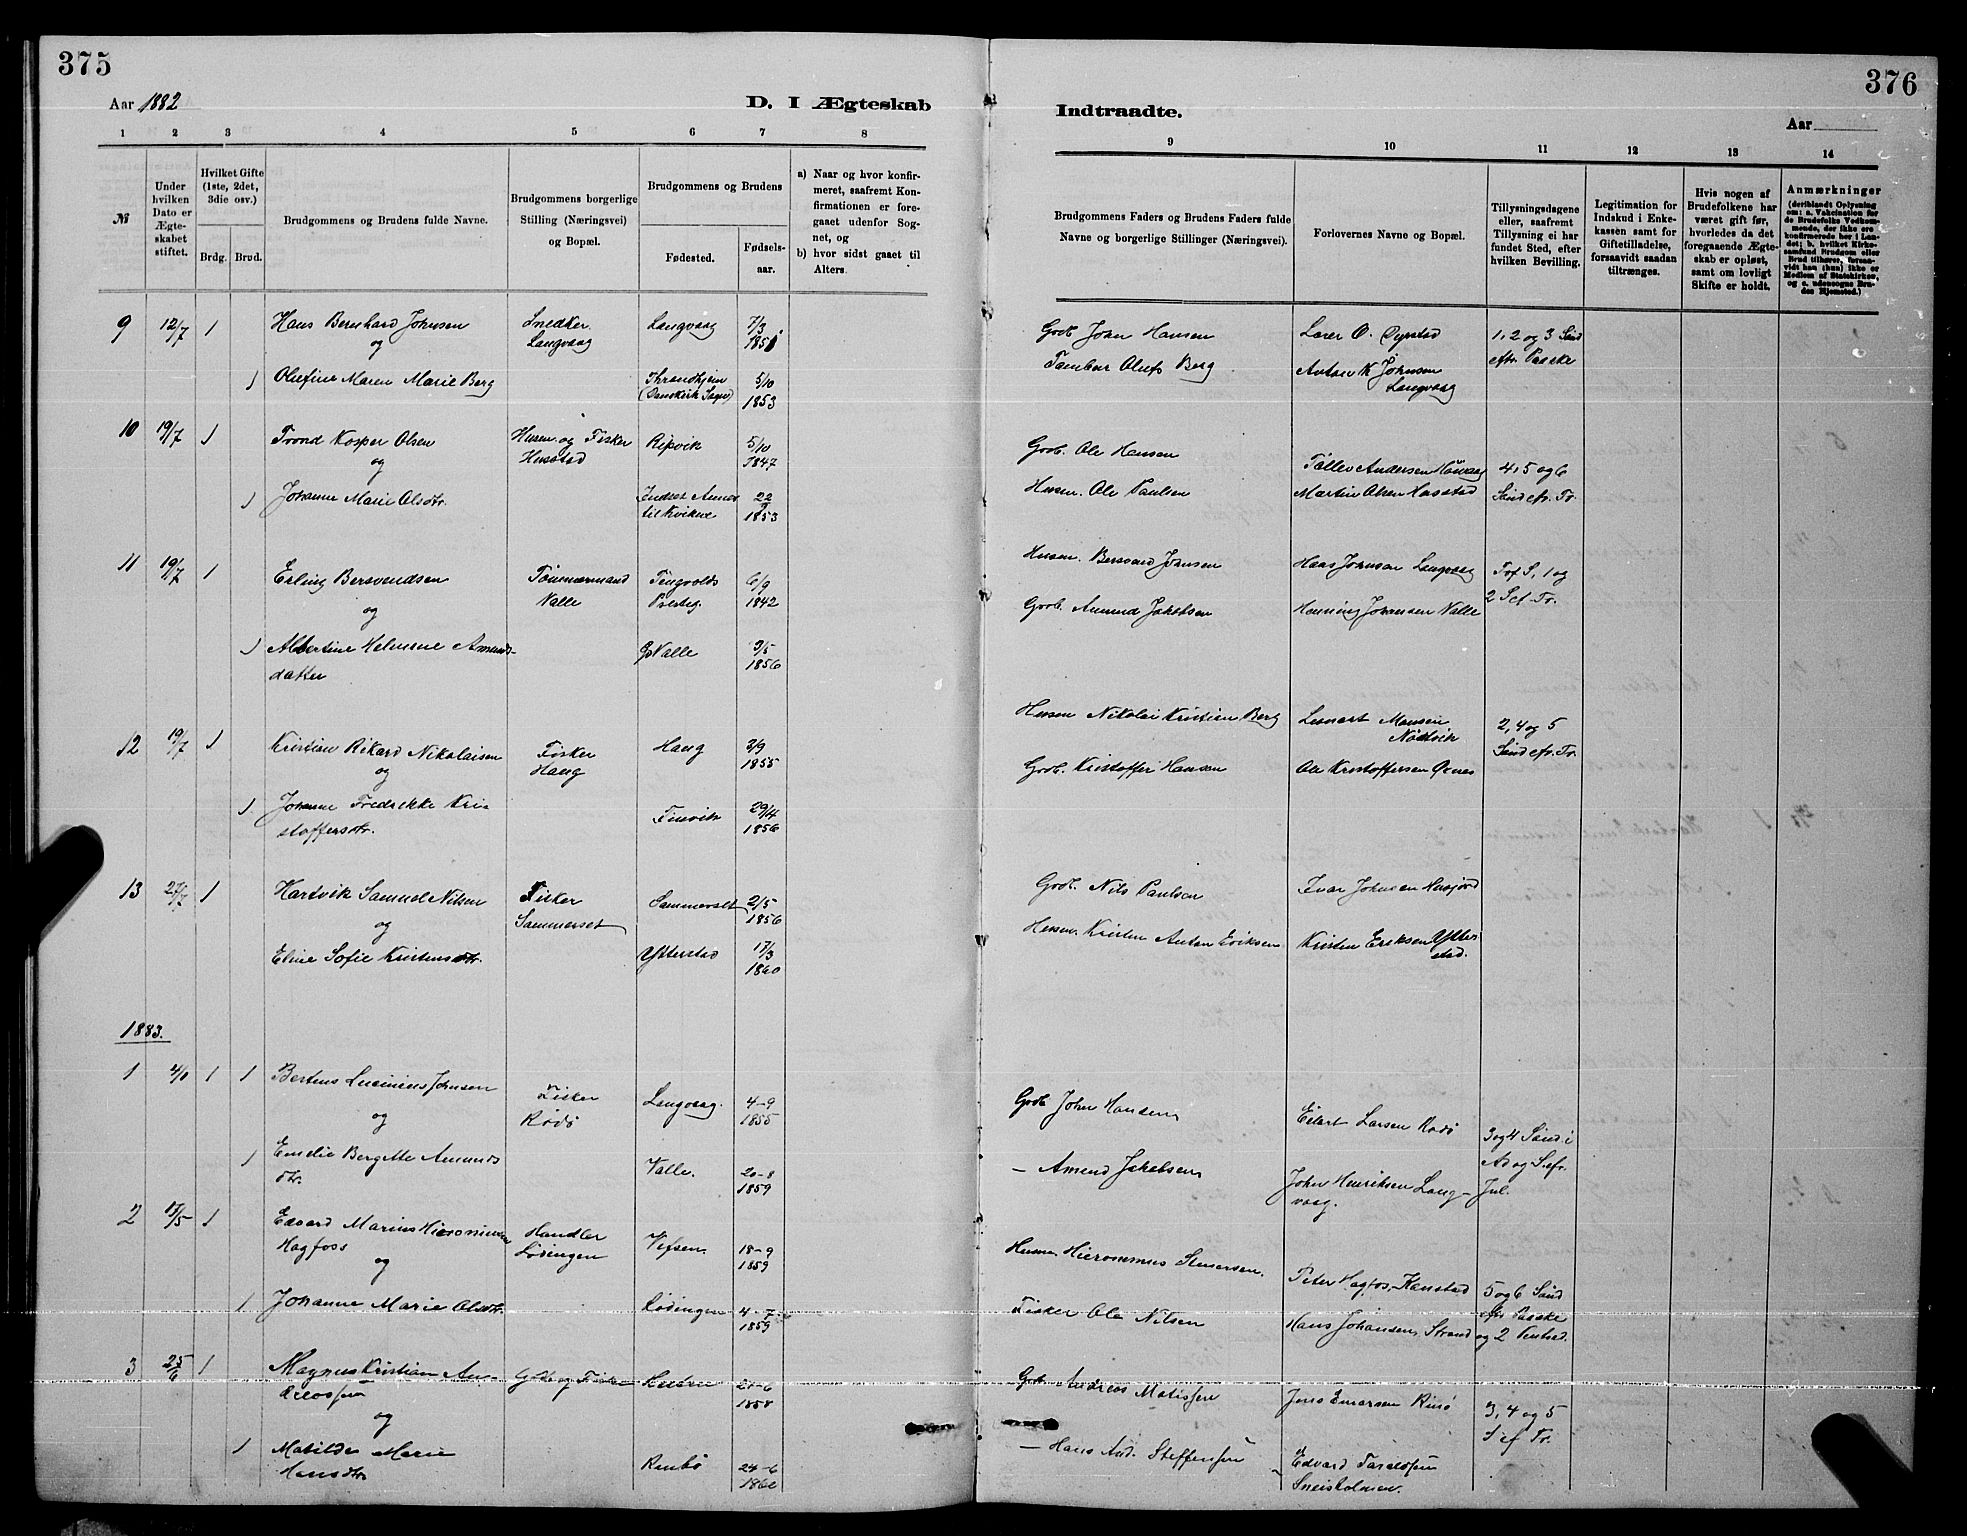 375
Aar 1882
D. I Ægteskab
1 2 3 4 5 6 7 8
№
Under hvilken Dato er Ægteskabet stiftet.
Hvilket Gifte (1ste, 2det, 3die osv.)
Brdg. Brud.
Brudgommens og Brudens fulde Navne.
Brudgommens borgerlige Stilling (Næringsvei) og Bopæl.
Brudgommens og Brudens
Fødested.
Fødselsaar.
a) Naar og hvor konfirmeret, saafremt Konfirmationen er foregaaet udenfor Sognet, og
b) hvor sidst gaaet til Alters.
9 12/7 1 Hans Bernhard Johnsen Snedker Langvaag 7/3
og Langvaag 1851
1 Olefine Maren Marie Berg Throndhjem 5/10
(Domkirk Sogn) 1853
10 19/7 1 Trond Kasper Olsen Husm. og Fisker Ripvik 5/10
og Husstad 1847
1 Johanne Marie Olsdtr. Indset Annex 22/9
til Kvikne 1853
11 19/7 1 Erling Bersvendsen Tømmermand Tingvolds 6/9
og Valle Prestg. 1842
1 Albertine Helmine Amunds- Valle 9/5
datter 1856
12 19/7 1 Kristian Rikard Nikolaisen Fisker Haug 3/9
og Haug 1855
1 Johanne Fredrikke Kri- Finvik 29/4
stoffersdtr. 1856
13 27/7 1 Hartvik Samuel Nilsen Fisker Sammerset 2/5
og Sammerset 1856
Eline Sofie Kristensdtr. Ytterstad 17/3
1860
1883.
1 1 1 Bertens Johnsen Fisker Langvaag. 4-9
og Rødø 1855
1 Emelie Bergitte Amunds Valle. 20-8
dtr. 1859
2 17/5 1 Edvard Marius Hieronimusen Handler Vefsen. 18-9
Hagfoss Lødingen 1859
og
1 Johanne Marie Olsdtr. Lødingen 4-7
1859
3 25/6 1 Magnus Kristian An-
dreassen 1858
og
1 Matilde Marie 24-6
Hansdtr.
376
Indtraadte.
Aar
9 10 11 12 13 14
Brudgommens Faders og Brudens Faders fulde Navne og borgerlige Stillinger (Næringsvei).
Forlovernes Navne og Bopæl.
Tillysningsdagene eller, saafremt Tillysning ei har fundet Sted, efter hvilken Bevilling.
Legitimation for Indskud i Enkekassen samt for Giftetilladelse, forsaavidt saadan tiltrænges.
Hvis nogen af Brudefolkene har været gift før, hvorledes da det foregaaende Ægteskab er opløst, samt om lovligt Skifte er holdt.
Anmærkninger (deriblandt Oplysning om: a. Vakcination for de Brudefolks Vedkommende, der ikke ere konfirmerede her i Landet; b. hvilket Kirkesamfund Brudgom eller Brud tilhører, forsaavidt han (hun) ikke er Medlem af Statskirken, og c. udensogns Brudes Hjemsted.)
Grdb. John Hansen Lærer O. Dyrstad 1, 2 og 3 Sønd
Tambur Oluf Berg Anton K Johnsen efter Paaske
Langvaag
Grdb. Ole Hansen Tollev Andersen 4, 5 og 6
Husm. Ole Paulsen Martin Olsen Husstad Sønd efr. Tr.
Husm. Bersvend Johnsen Hans Johnsen Langvaag Tref S, 1 og
Grdb. Amund Jakobsen Henning Johansen Valle 2 S ef. Tr.
Husm Nikolai Kristian Berg Lennart Monsen 2, 4 og 5
Nødtvik Sønd efr. Tr.
Grdb. Kristoffer Hansen Ole Kristoffersen Øxnes
Grdb. Nils Paulsen Ivar Johnsen Husjord
Husm. Kristen Anton Eriksen Kristen Eriksen Ytter-
stad.
Grdb John Hansen Eilert Larsen Rødø 3 og 4 Sønd i
— Amund Jakobsen Ad og S. efr.
John Henriksen Lang- Jul.
vaag.
Husm Hieronimus Stenersen. Peter Hagfos, Kanstad 5 og 6 Sønd
Fisker Ole Nilsen efr. Paaske
Hans Johansen Strand og 2 Pentsd.
Grdb Andreas Matissen Jens Einarsen Rinø 3, 4 og 5
S ef Tr.
— Hans And. Steffensen Edvard Taraldsen
Sneisholmen.